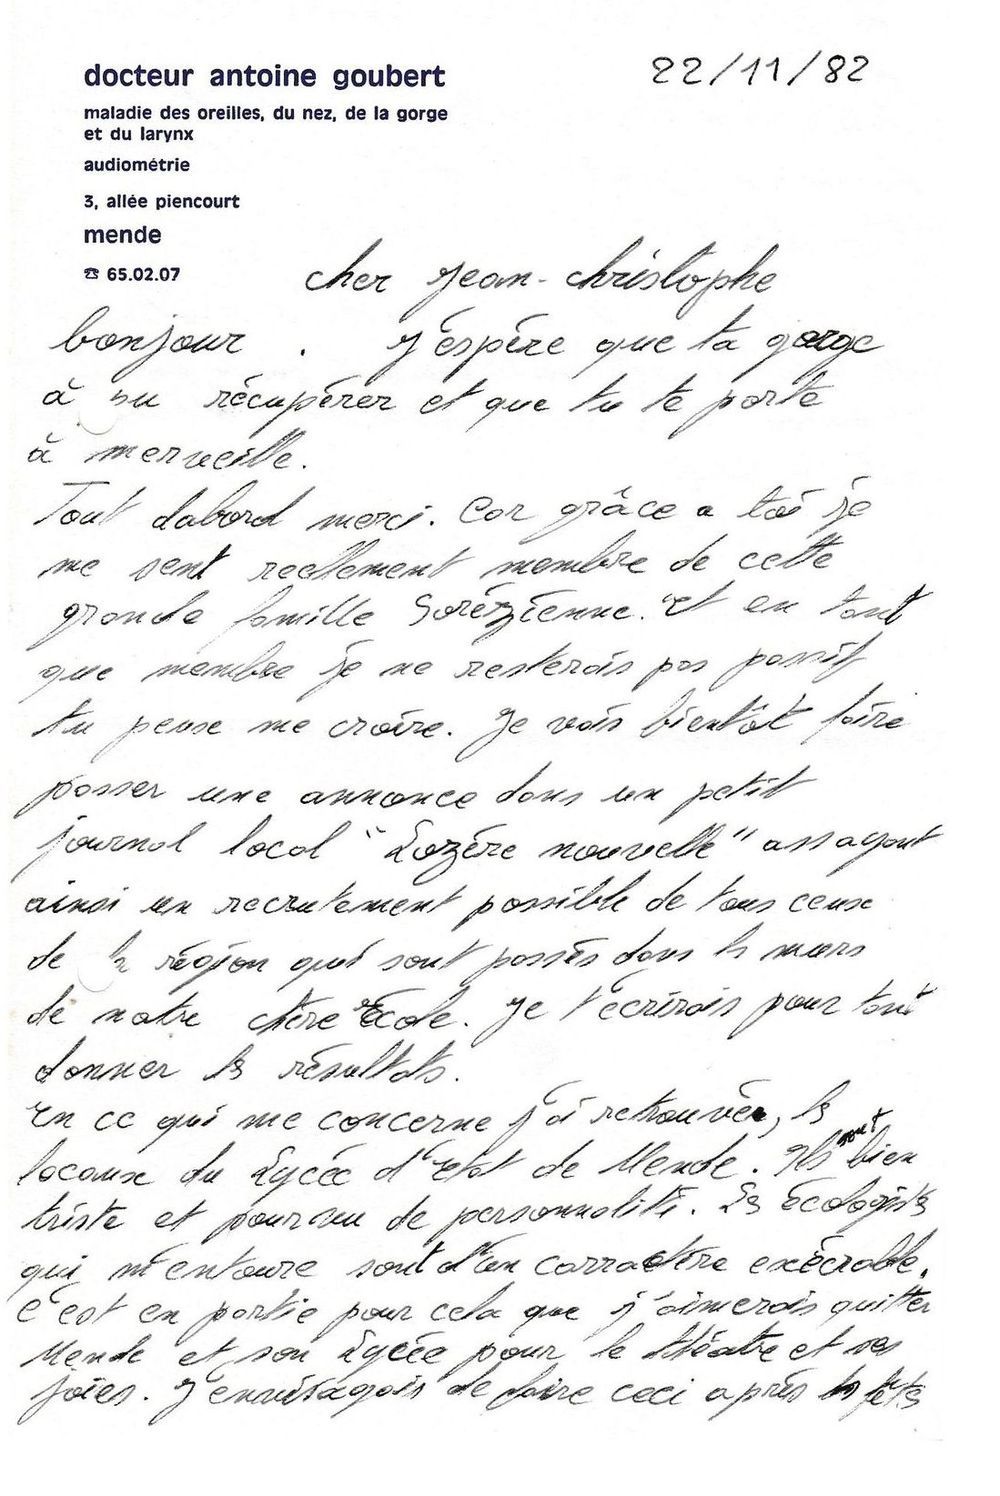 docteur antoine goubert
22/11/82
maladie des oreilles, du nez, de la gorge
et du larynx
audiométrie
3, allée piencourt
mende
☎ 65.02.07
cher Jean-christophe
bonjour . J'éspère que ta gorge
à su récupérer et que tu te porte
à merveille.
Tout dabord merci. Car grâce a toi je
me sent reellement membre de cette
grande famille Sorézienne. Et en tant
que membre je ne resterais pas passif
tu peux me croire. Je vais bientôt faire
passer une annonce dans un petit
journal local "Lozère nouvelle" assayant
ainsi un recrutement possible de tous ceux
de la région qui sont passés dans ls murs
de notre chère Ecole. Je t'écrirais pour tout
donner ls résultats.
En ce qui me concerne j'ai retrouvée, ls
locaux du Lycée d'Etat de Mende. Ils sont bien
triste et pourvu de personnalité. Ls écologists
qui m'entoure sont d'un carractère exécrable.
C'est en partie pour cela que j'aimerais quitter
Mende et son Lycée pour le théatre et ses
joies. J'envisageais de faire ceci après ls fêtes